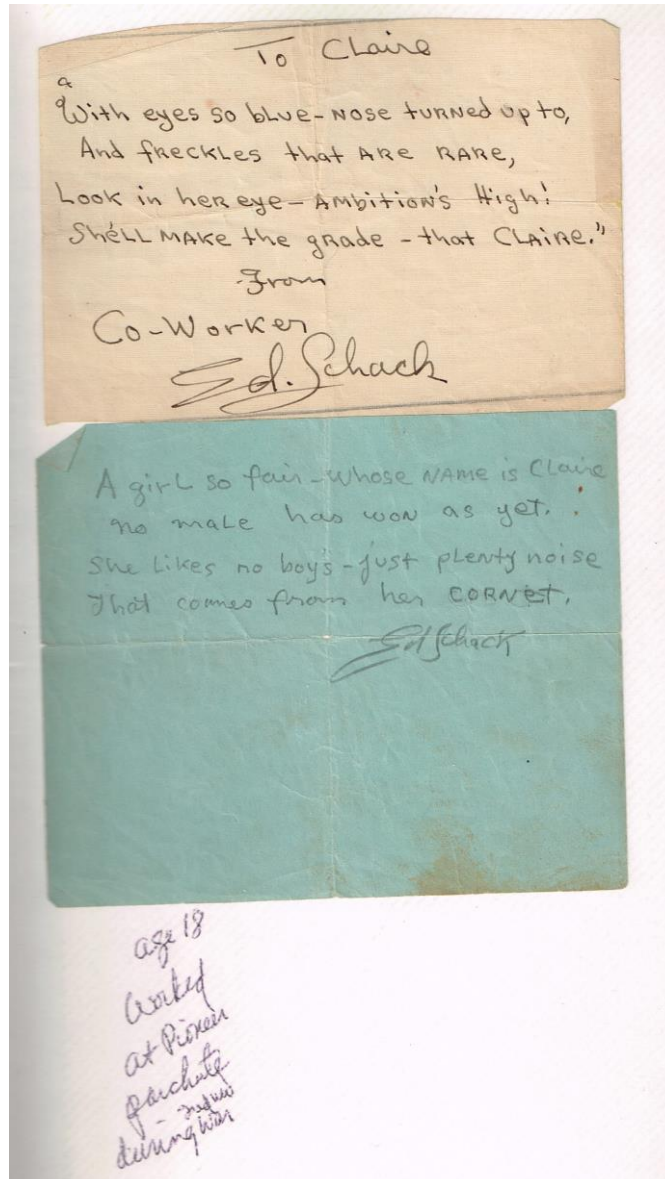 To Claire
"With eyes so blue - nose turned up to,
And freckles that are rare,
Look in her eye - Ambition's High!
She'll make the grade - that Claire."
From
Co-Worker
Ed. Schack
A girl so fair - whose name is Claire
no male has won as yet.
She likes no boy's - just plenty noise
That comes from her cornet.
Ed Schack
age 18
worked
at Pioneer
parchute
during War